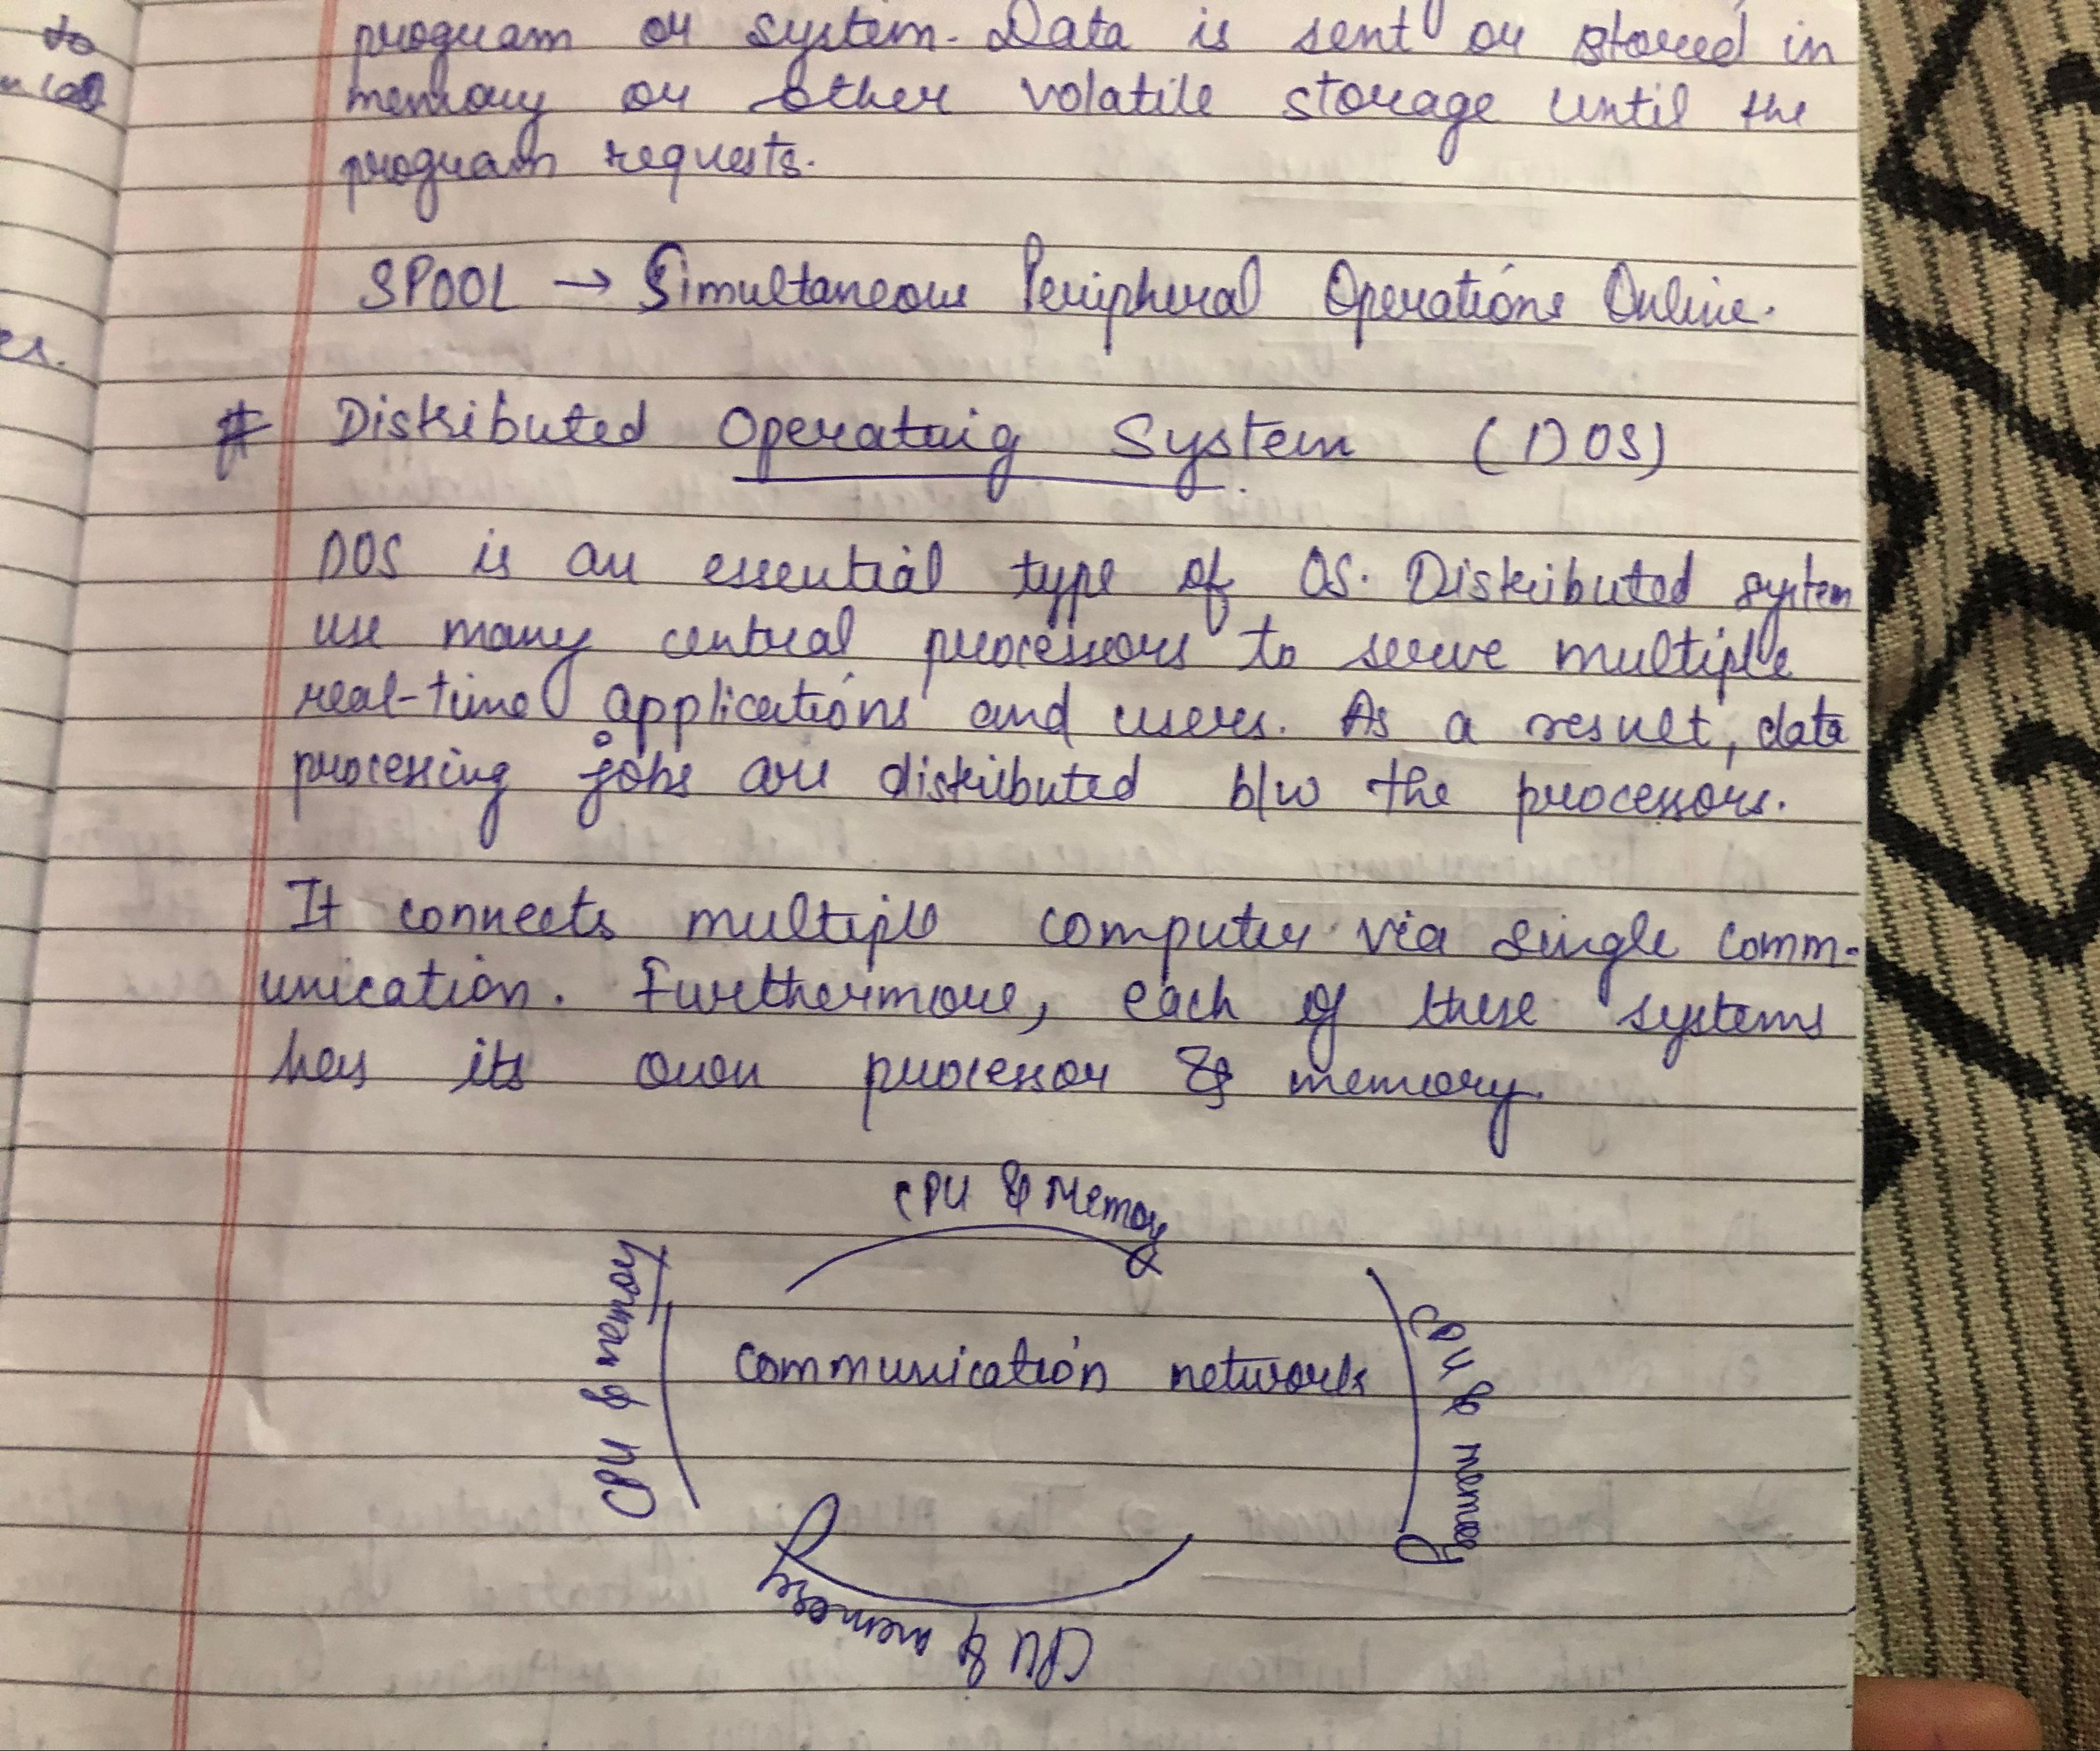 to
program or system. Data is sent or stored in
memory or other volatile storage until the
program requests.
SPOOL → Simultaneous Peripheral Operations Online.
es.
# Distributed Operating System (DOS)
DOS is an essential type of OS. Distributed system
use many central processors to serve multiple
real-time applications and users. As a result, data
processing jobs are distributed b/w the processors.
It connects multiple computer via single comm-
unication. Furthermore, each of these systems
has its own processor & memory.
CPU & Memory
CPU & memory
communication networks
CPU & memory
CPU & memory